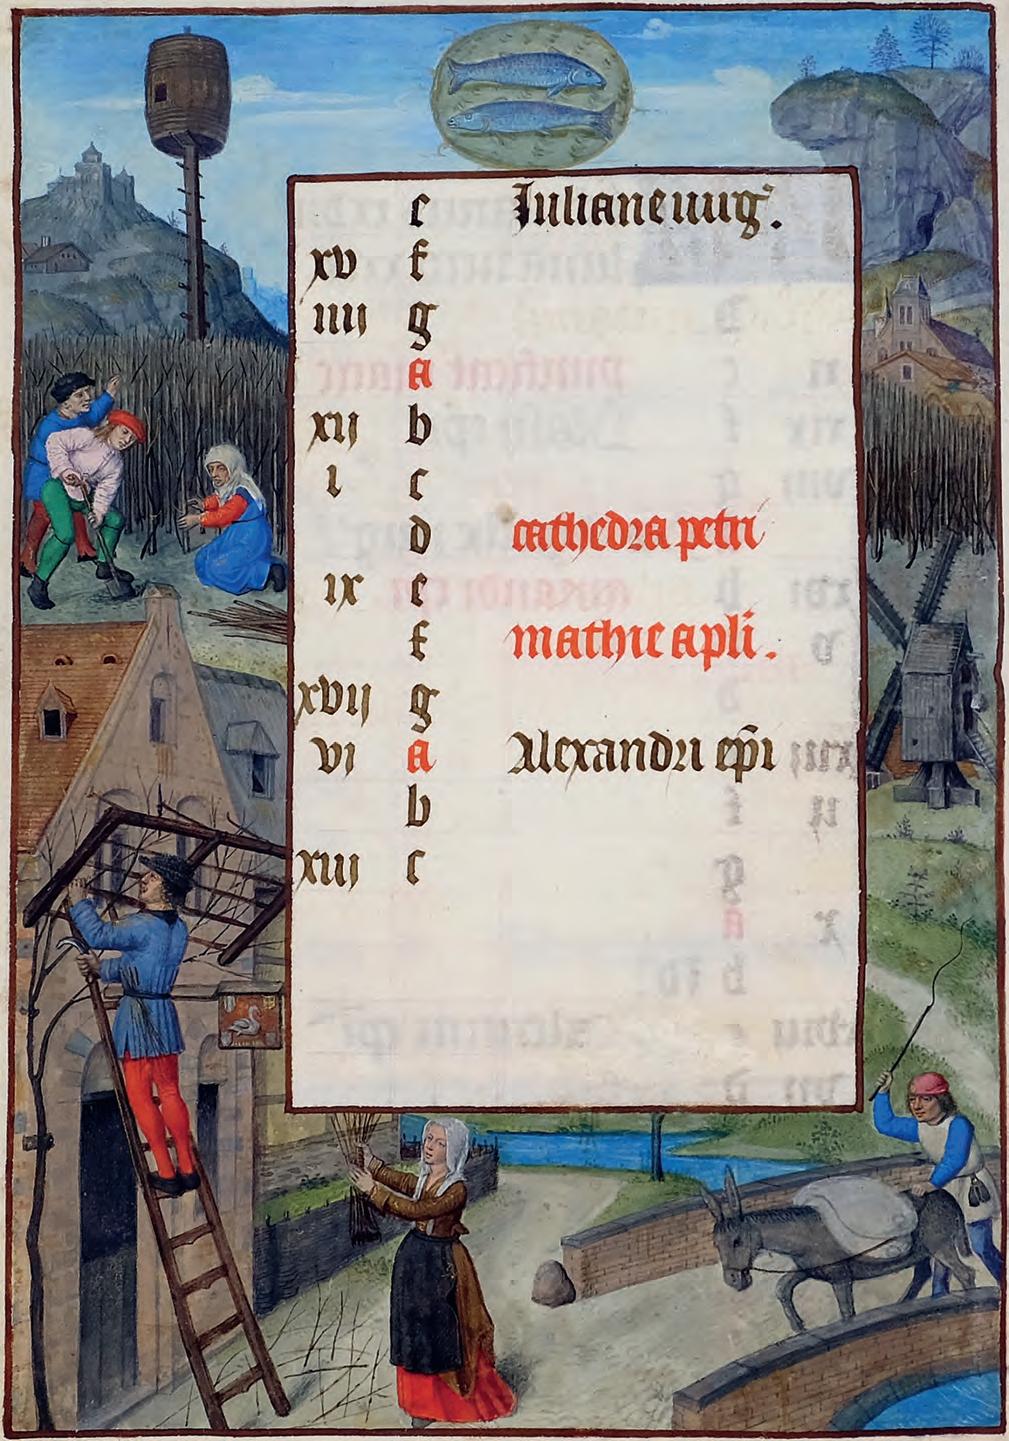 e Iuliane uirg̃.
xv f
iiij g
a
xij b
i c
d cathedra petri
ix e
f mathie apl̃i.
xvij g
vi a Alexandri ep̃i
b
xiij c